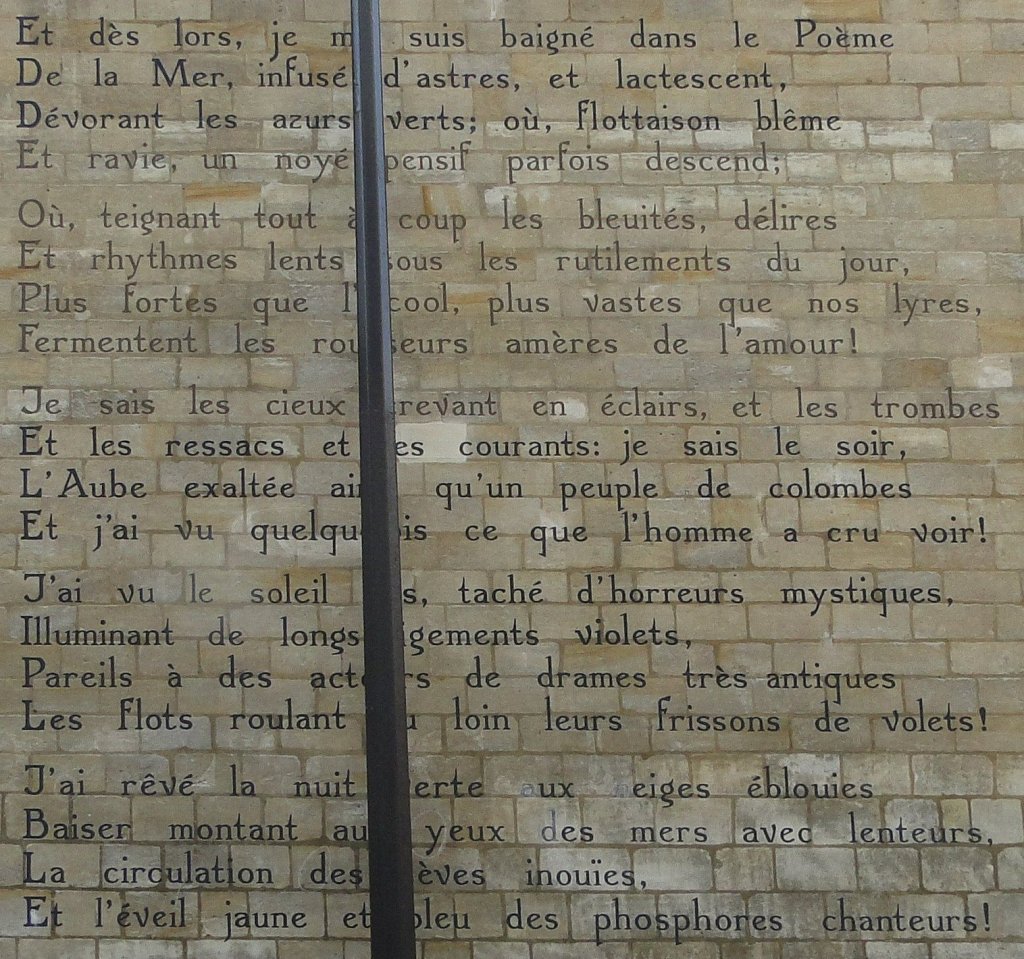 Et dès lors, je me suis baigné dans le Poème
De la Mer, infusé d'astres, et lactescent,
Dévorant les azurs verts; où, flottaison blême
Et ravie, un noyé pensif parfois descend;
Où, teignant tout à coup les bleuités, délires
Et rhythmes lents sous les rutilements du jour,
Plus fortes que l'alcool, plus vastes que nos lyres,
Fermentent les rousseurs amères de l'amour!
Je sais les cieux crevant en éclairs, et les trombes
Et les ressacs et les courants: je sais le soir,
L'Aube exaltée ainsi qu'un peuple de colombes
Et j'ai vu quelquefois ce que l'homme a cru voir!
J'ai vu le soleil bas, taché d'horreurs mystiques,
Illuminant de longs figements violets,
Pareils à des acteurs de drames très antiques
Les flots roulant au loin leurs frissons de volets!
J'ai rêvé la nuit verte aux neiges éblouies
Baiser montant aux yeux des mers avec lenteurs,
La circulation des sèves inouïes,
Et l'éveil jaune et bleu des phosphores chanteurs!